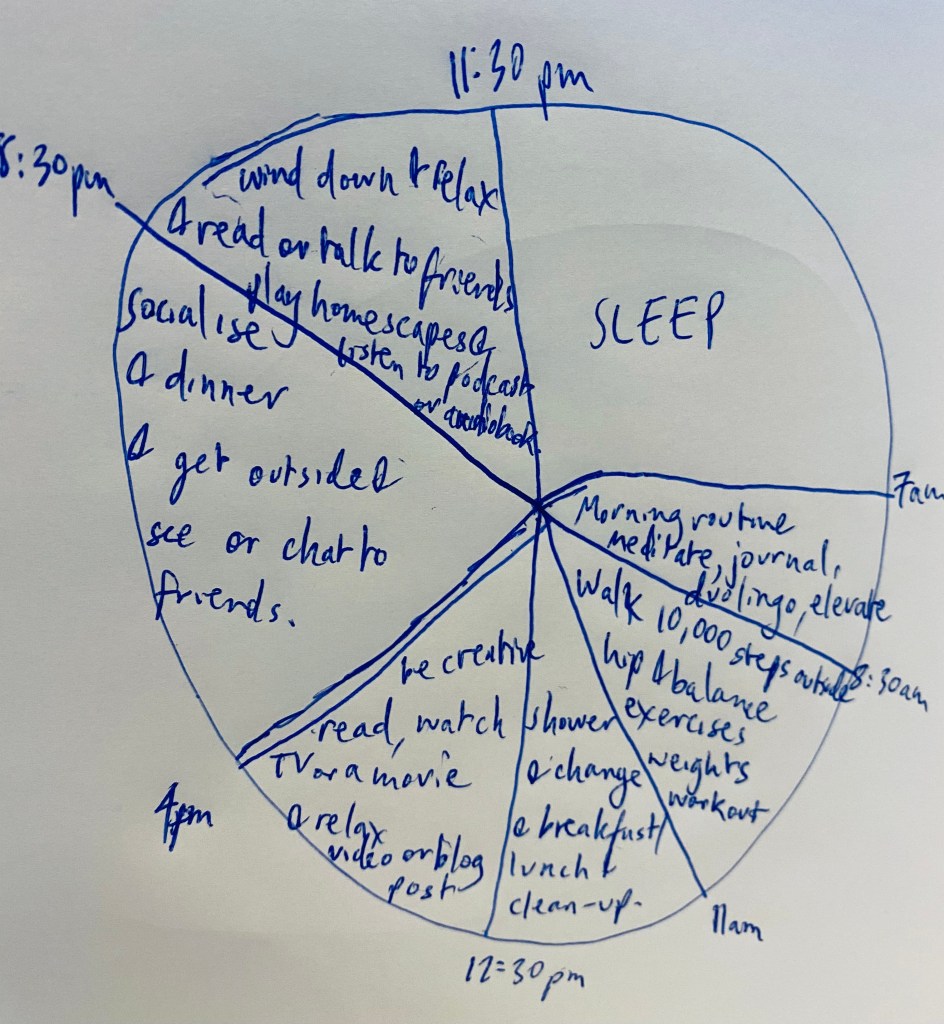 11:30 pm
8:30pm
wind down & relax
& read or talk to friends
play homescapes &
listen to podcast
or audiobook
SLEEP
7am
Morning routine
meditate, journal,
duolingo, elevate
8:30am
Walk 10,000 steps outside
hip & balance
exercises
weights
workout
11am
shower
& change
& breakfast/
lunch &
clean-up.
12:30pm
be creative
read, watch
TV or a movie
& relax
video or blog
post
4pm
socialise
& dinner
& get outside &
see or chat to
friends.